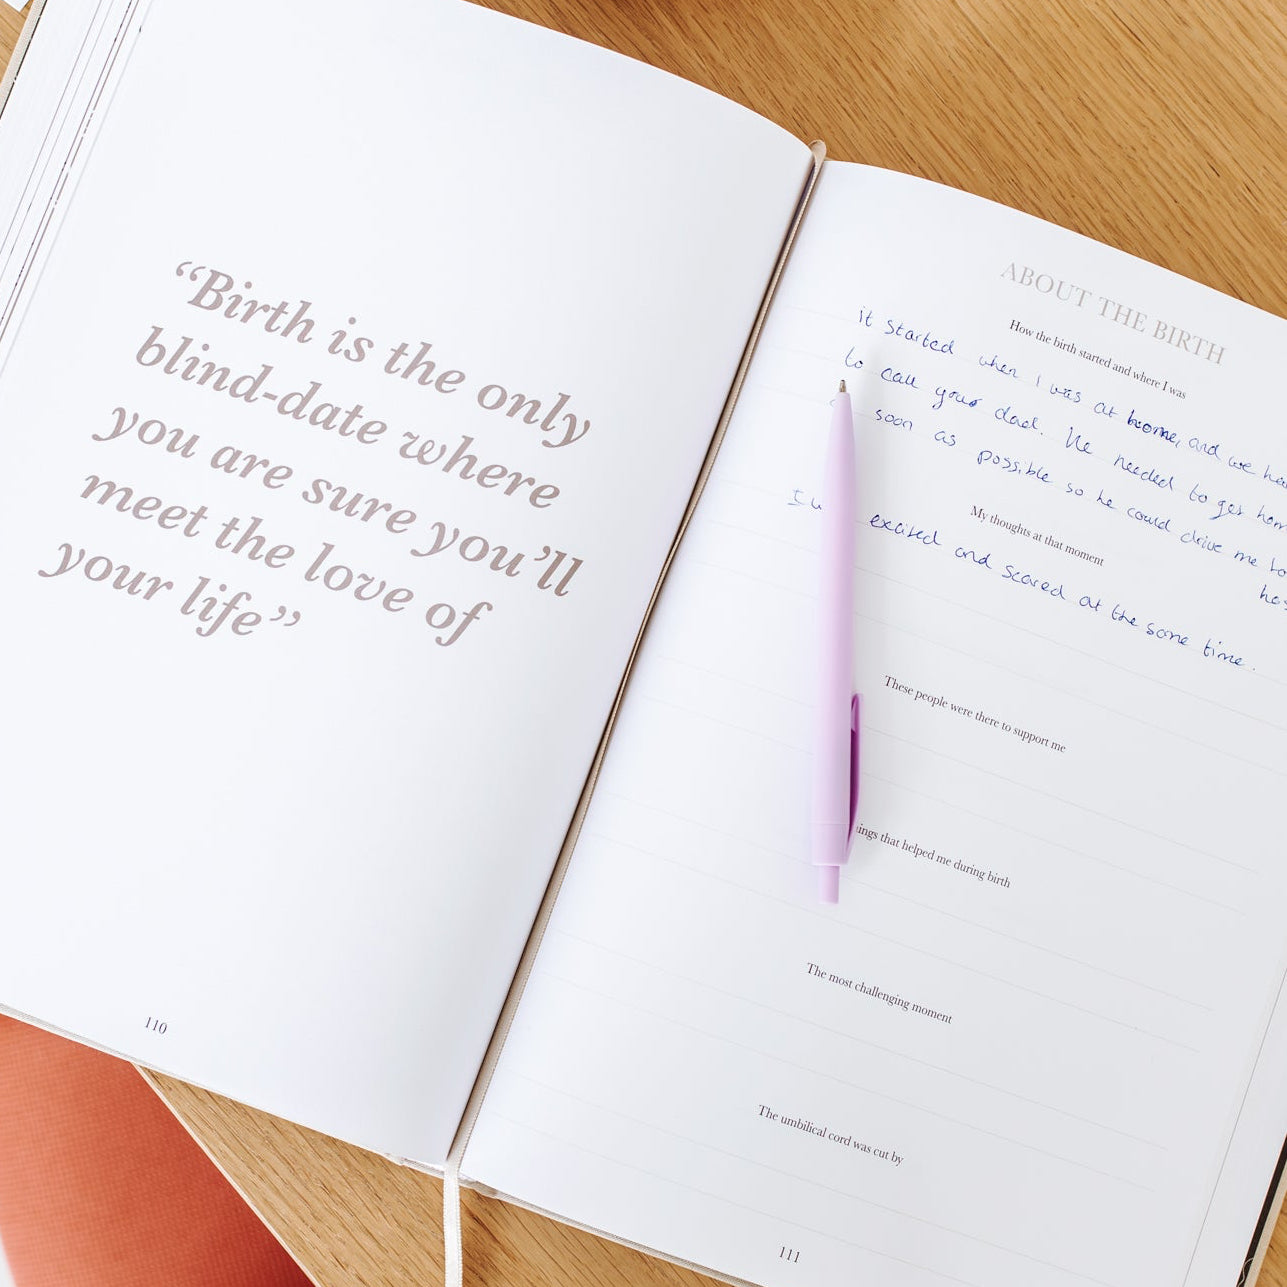 “Birth is the only
blind-date where
you are sure you’ll
meet the love of
your life”
110
ABOUT THE BIRTH
How the birth started and where I was
it started when I was at home, and we
to call your dad. He needed to get
soon as possible so he could drive me to
My thoughts at that moment
I excited and scared at the same time.
These people were there to support me
that helped me during birth
The most challenging moment
The umbilical cord was cut by
111